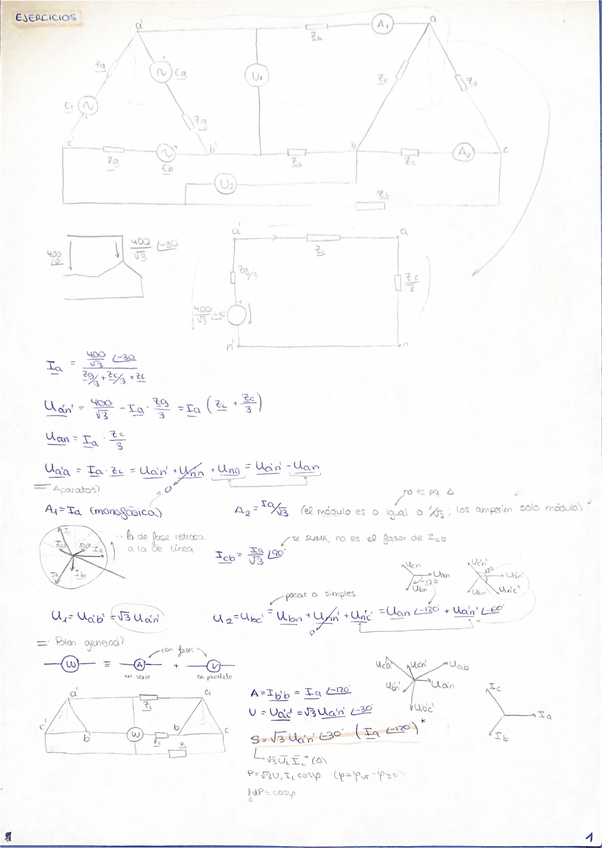 EJERCICIOS
a'
Z_L
A₁
a
Zg
Eg
U₁
Zc
Zc
Ec
Zg
c
b'
b
c
Zg
Eb
Z_L
Z_L
A₂
U₂
400
400/√3 ∟-30
a'
a
Z_L
Zg/3
Zc/3
400/√3
n'
n
Ia = (400/√3 ∟-30) / (Zg/3 + Zc/3 + ZL)
Ua'n' = 400/√3 - Ia · Zg/3 = Ia (ZL + Zc/3)
Uan = Ia · Zc/3
Ua'a = Ia · ZL = Ua'n' + Un'n + Una = Ua'n' - Uan
0
Aparatos?
no es pq Δ
A₁ = Ia (monofásica)
A₂ = Ia/√3 (el módulo es igual a 1/√3, los amperím solo módulo)
la de fase retrasa
a la de línea
Icb = Ia/√3 ∟90°
se suma, no es el fasor de Icb
Ucn
Uan
-120°
Ubn
pasar a simples
U₁ = Ua'b' = √3 Ua'n'
U₂ = Ubc' = Ubn + Unn' + Un'c' = Uan ∟-120 + Ua'n' ∟-60°
Potan genera?
con fases
W ≡ A + V
en serie
en paralelo
a'
a
ZL
c'
b'
W
ZL
b
c
ZL
A = Ib'b = Ia ∟-120
V = Ua'c' = √3 Ua'n' ∟-30
S = √3 Ua'n' ∟-30 (Ia ∟-120)*
√3 UL IL* (Δ)
P = √3 UL IL cosφ
fdP = cosφ
Uab
Ua'n'
Ic
Ia
Ib
1